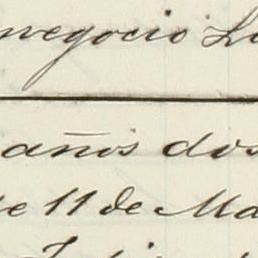 negocio Lu
años dos
de 11 de Ma